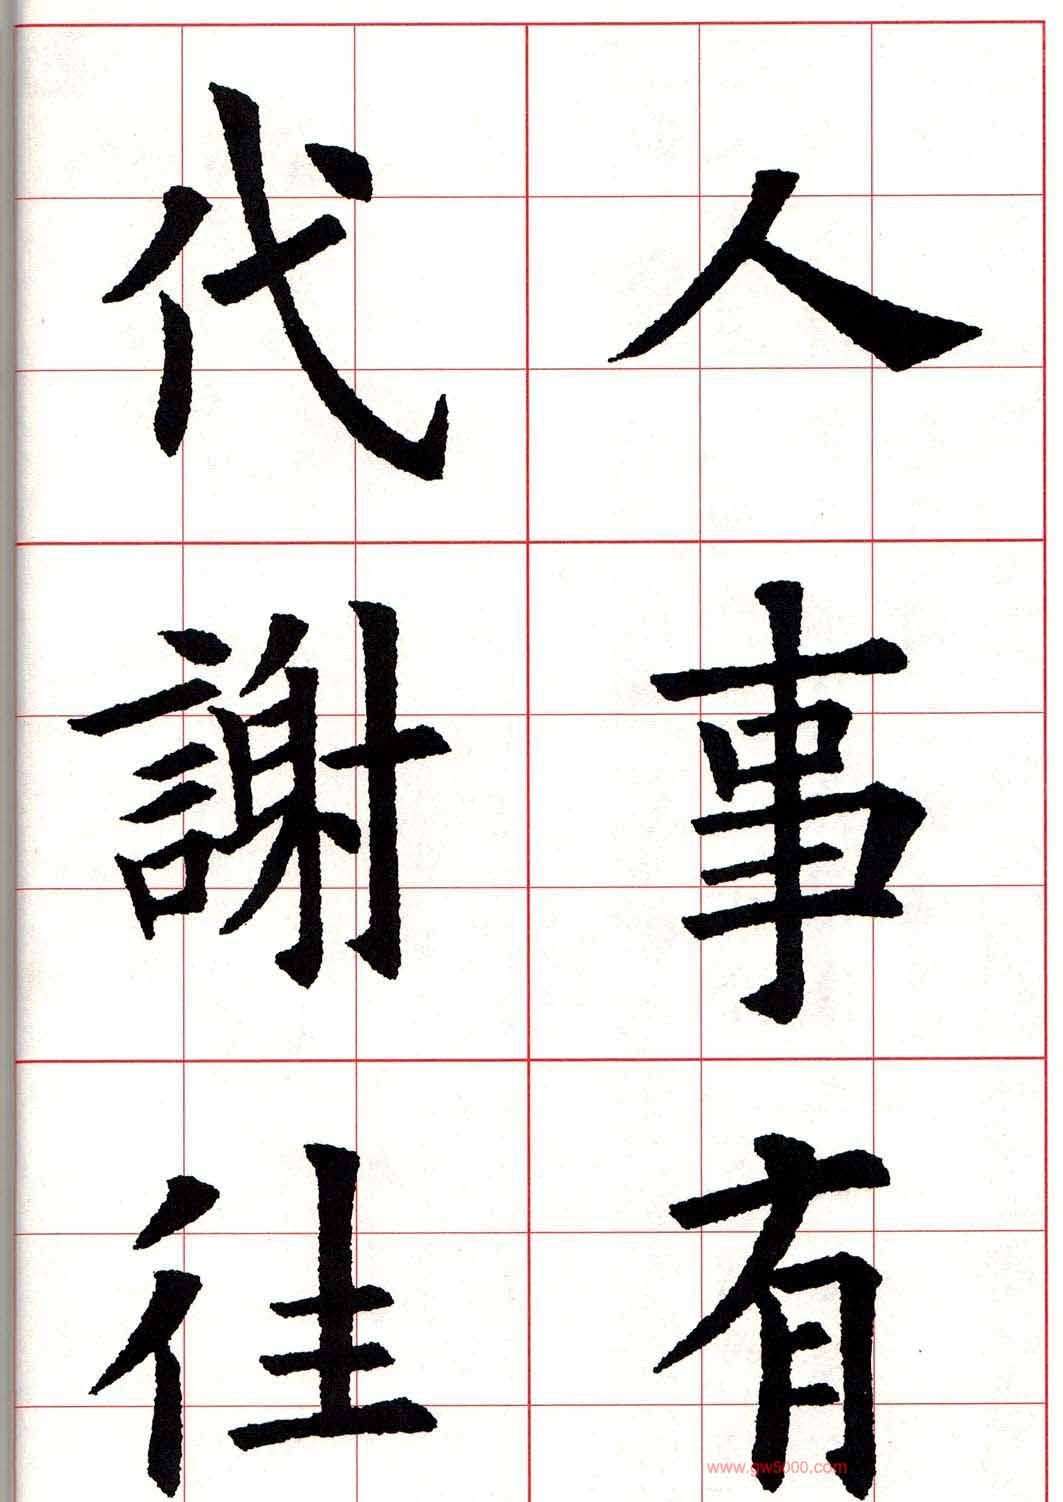 人事有
代謝往
www.gw5000.com